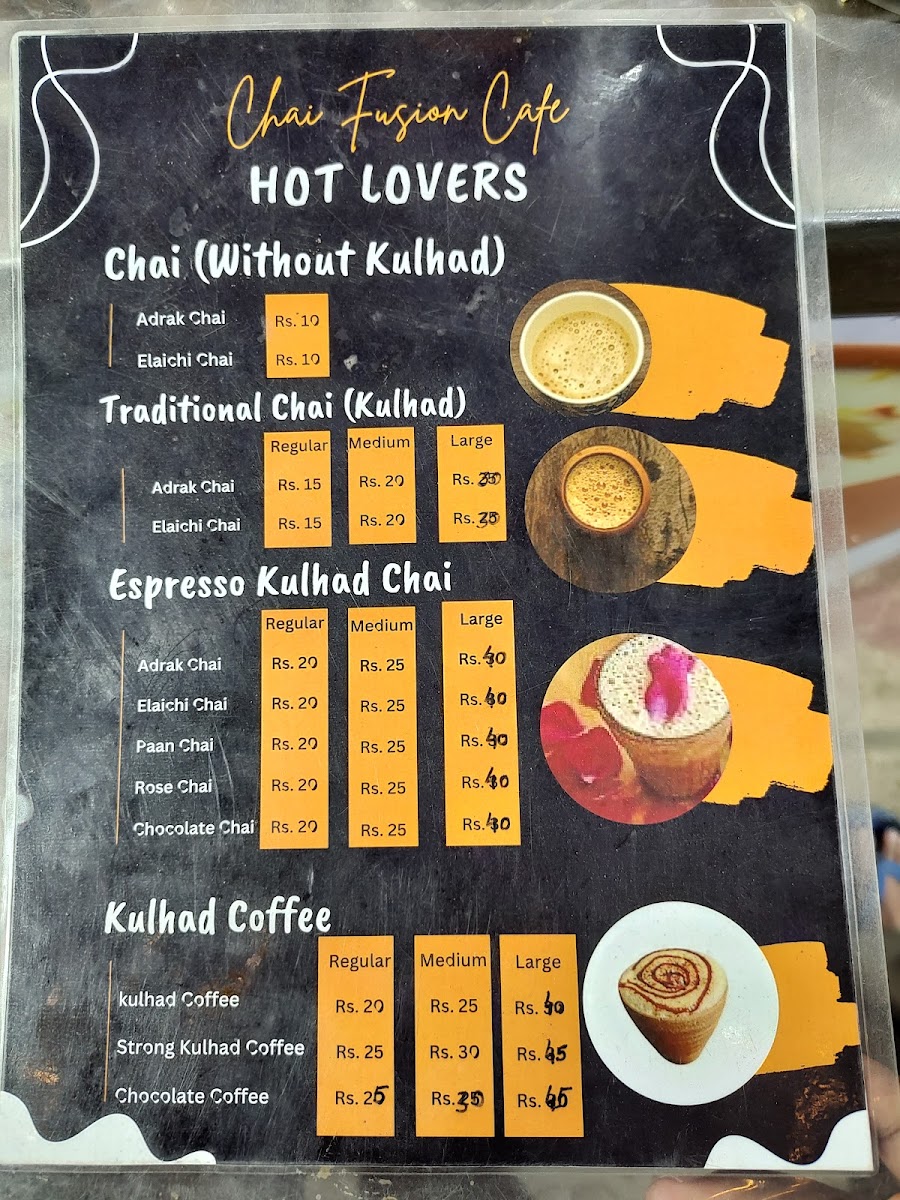 Chai Fusion Cafe
HOT LOVERS
Chai (Without Kulhad)
Adrak Chai Rs. 10
Elaichi Chai Rs. 10
Traditional Chai (Kulhad)
Regular Medium Large
Adrak Chai Rs. 15 Rs. 20 Rs. 30
Elaichi Chai Rs. 15 Rs. 20 Rs. 30
Espresso Kulhad Chai
Regular Medium Large
Adrak Chai Rs. 20 Rs. 25 Rs. 40
Elaichi Chai Rs. 20 Rs. 25 Rs. 40
Paan Chai Rs. 20 Rs. 25 Rs. 40
Rose Chai Rs. 20 Rs. 25 Rs. 40
Chocolate Chai Rs. 20 Rs. 25 Rs. 40
Kulhad Coffee
Regular Medium Large
kulhad Coffee Rs. 20 Rs. 25 Rs. 40
Strong Kulhad Coffee Rs. 25 Rs. 30 Rs. 45
Chocolate Coffee Rs. 25 Rs. 30 Rs. 45